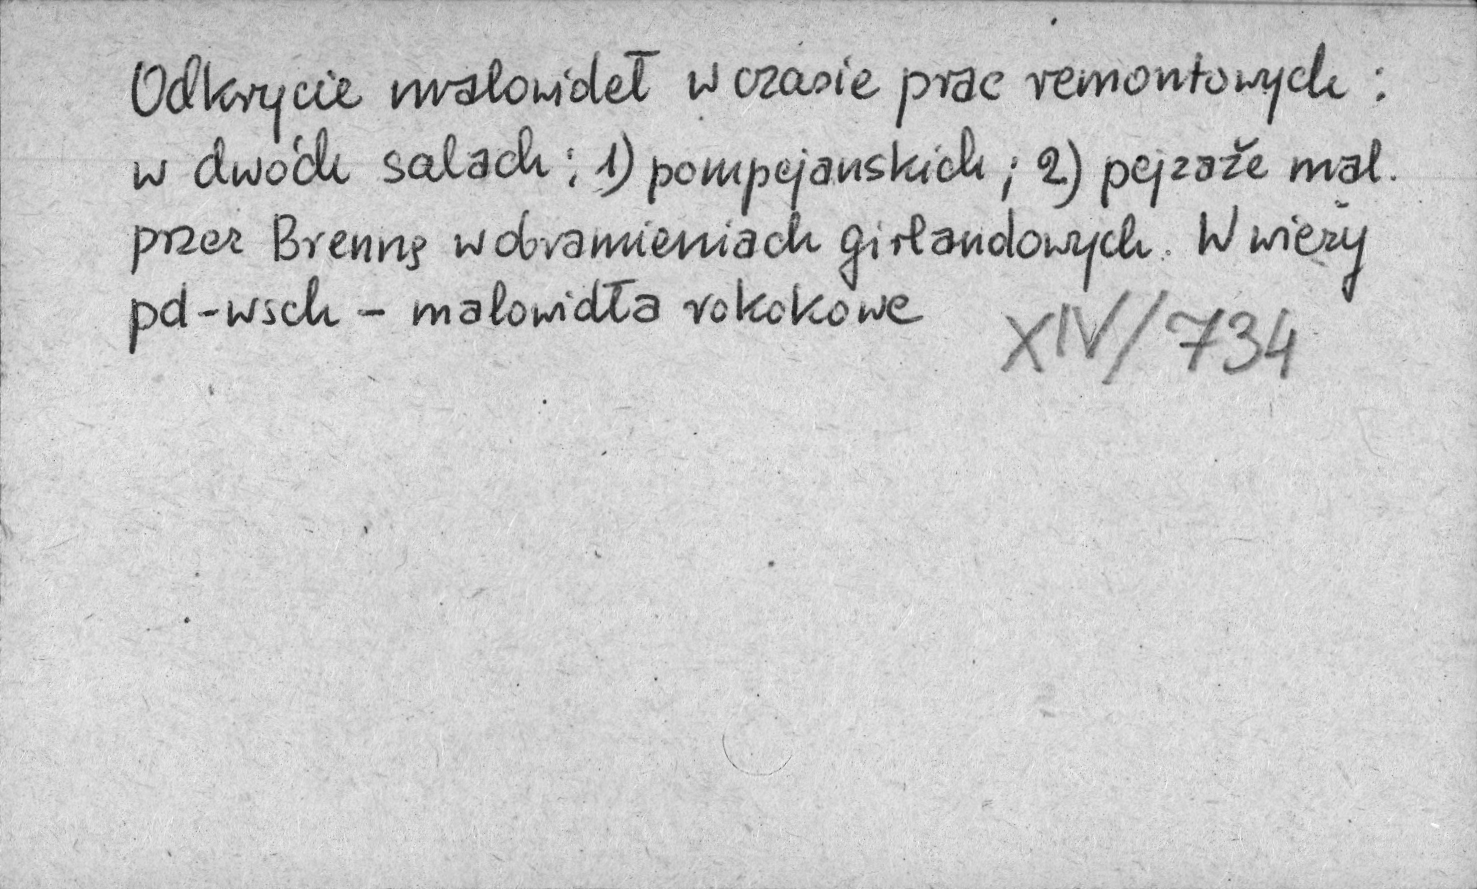 Odkrycie malowideł w czasie prac remontowych :
w dwóch salach : 1) pompejanskich ; 2) pejzaże mal.
przez Brennę w obramieniach girlandowych. W wieży
pd-wsch - malowidła rokokowe
XIV/734